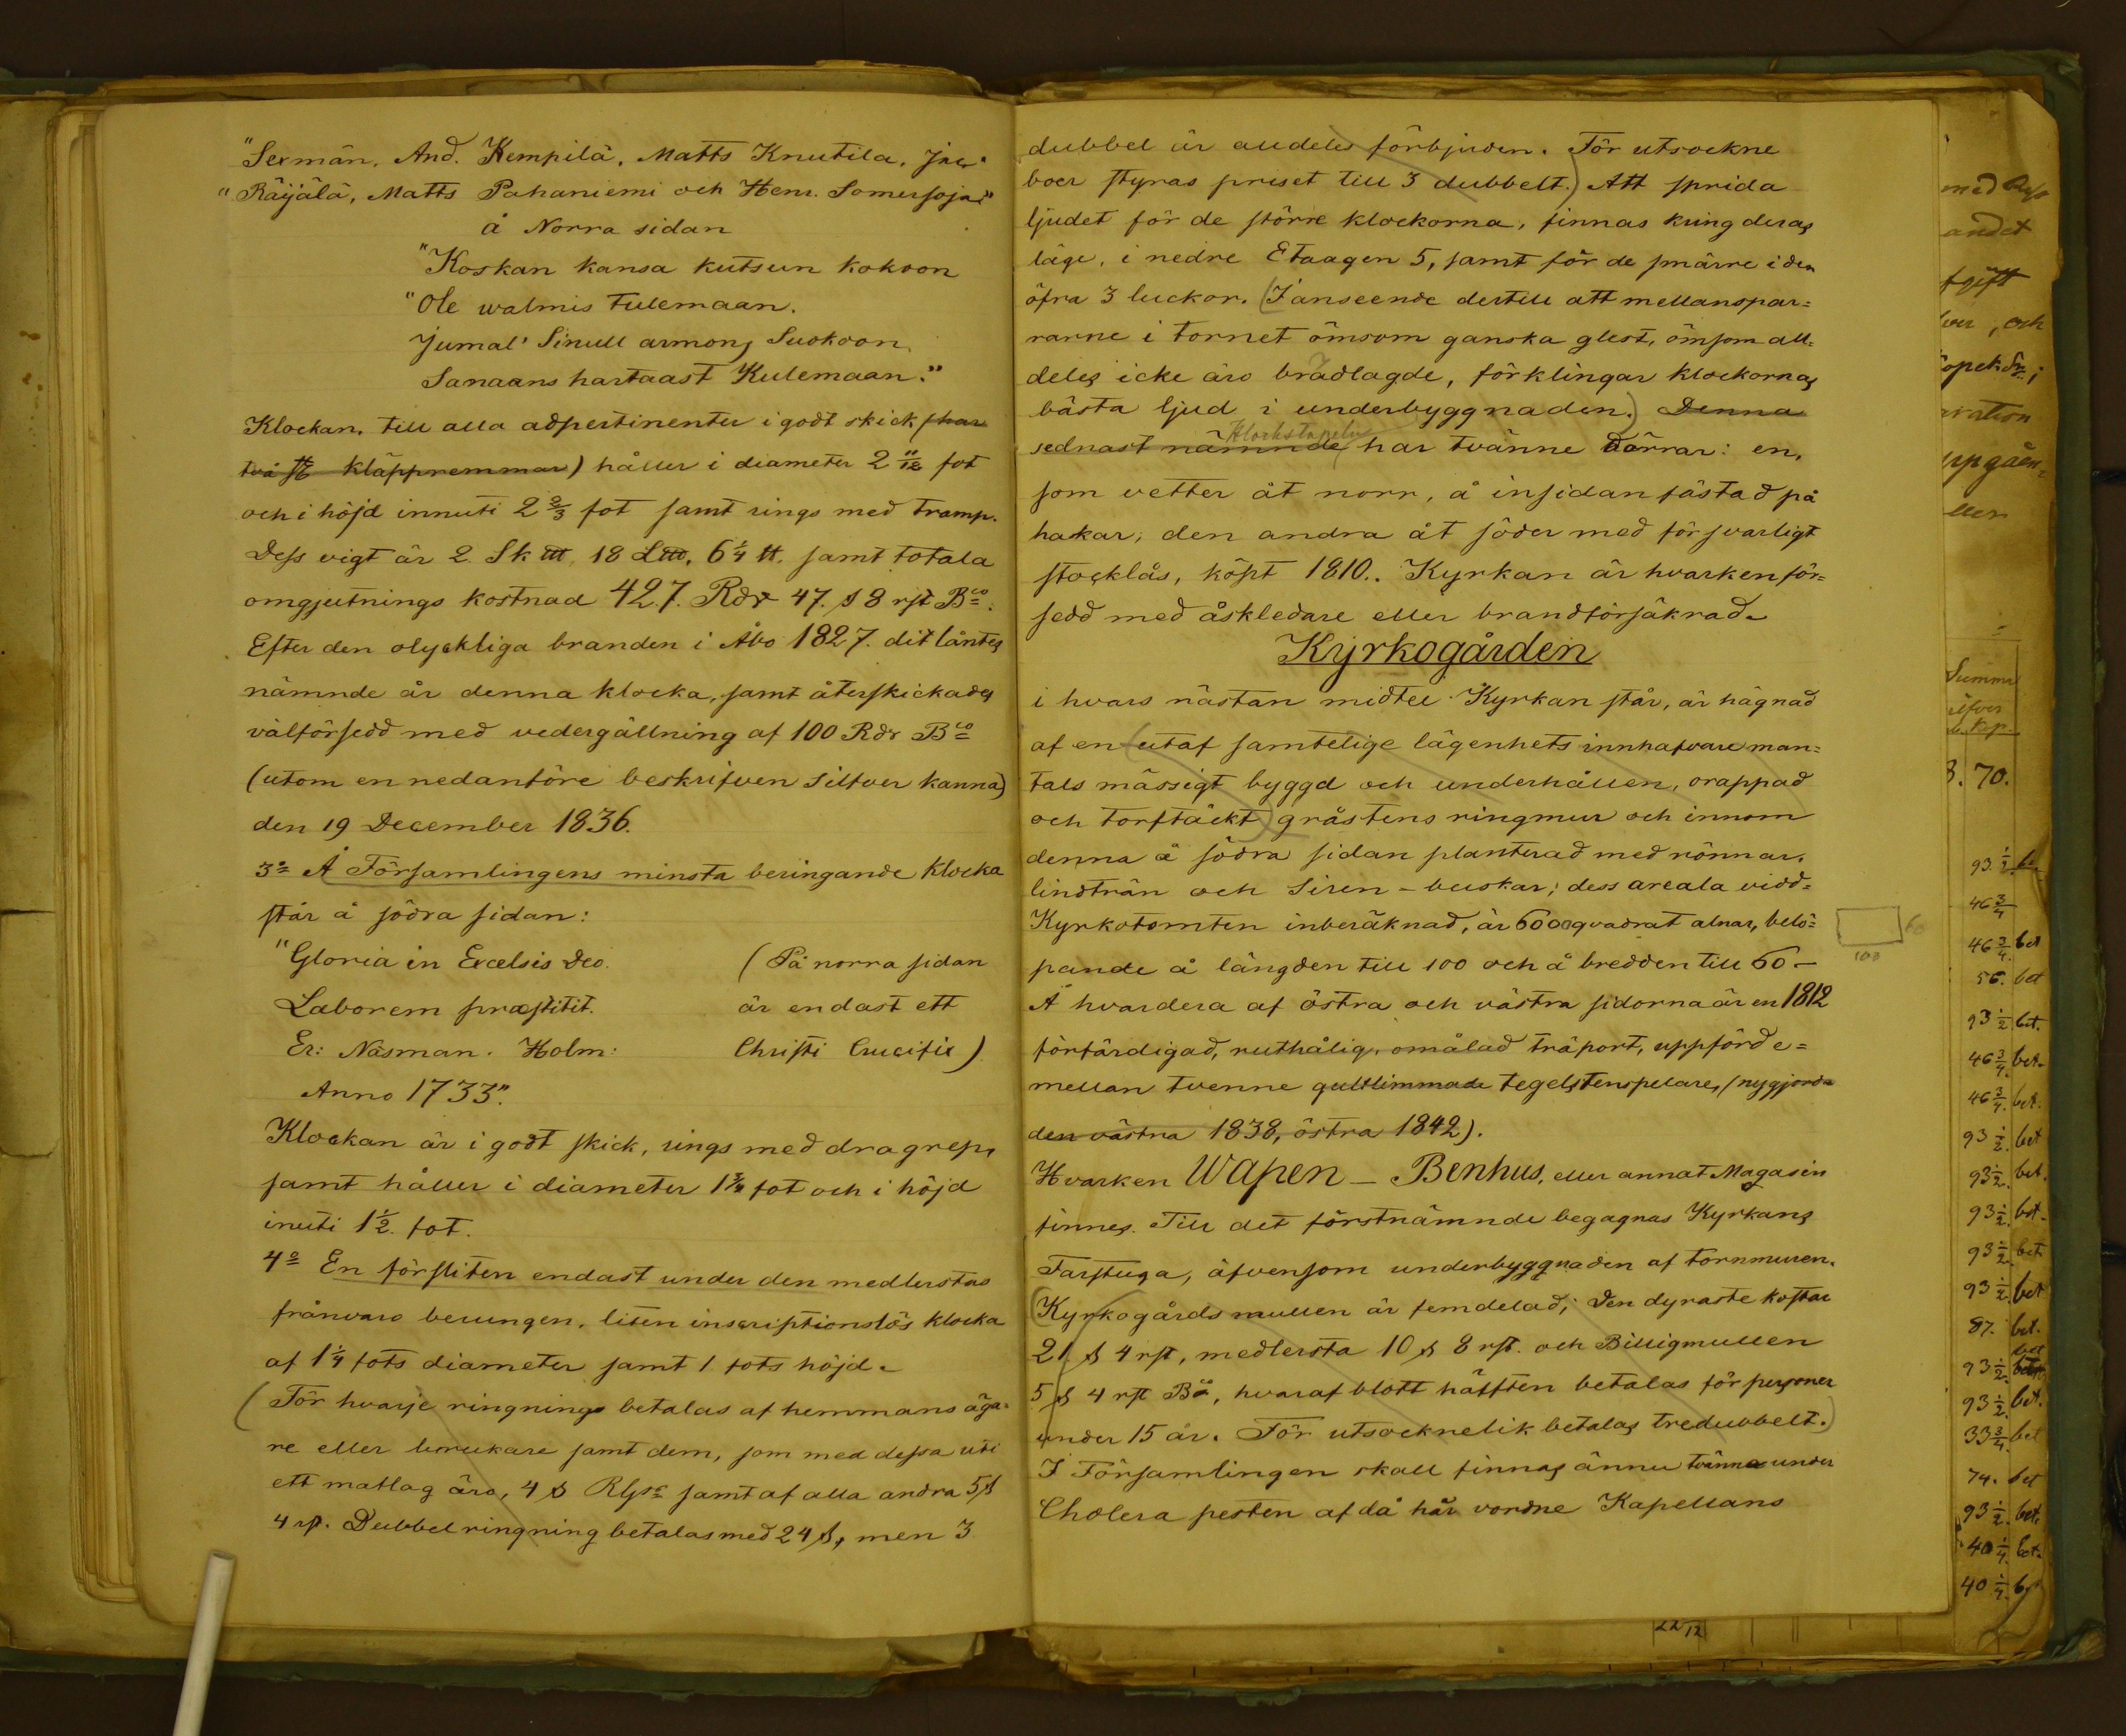 "Sexmän, And. Kempilä, Matts Knutila, Jac.
"Räijälä, Matts Pahaniemi och Henr. Somersoja"
å Norra sidan
"Koskan kansa kutsun kokoon
"Ole walmis tulemaan.
Jumal' Sinull armons Suokoon
Sanaans hartaast Kulemaan."
Klockan, till alla adpertinentier i godt skick (har
två st kläppremmar) håller i diameter 2 11/12 fot
och i höjd innuti 2 2/3 fot samt rings med tramp.
Dess vigt är 2. Sk ℔, 18 L℔, 6 1/4 ℔. samt totala
omgjutnings kostnad 427. Rdr 47. s 8 rst Bco.
Efter den olyckliga branden i Åbo 1827. dit låntes
nämnde år denna klocka, samt återskickades
välförsedd med vedergällning af 100 Rdr Bco
(utom en nedanföre beskrifven Silfver kanna)
den 19 December 1836.
3o Å Församlingens minsta beringande klocka
står å södra sidan:
"Gloria in Excelsis Deo. (På norra sidan
Laborem præstitit. är endast ett
Er: Näsman. Holm: Christi Crucifix)
Anno 1733".
Klockan är i godt skick, rings med dragrep,
samt håller i diameter 1 3/4 fot och i höjd
inuti 1 1/2. fot.
4o En försliten endast under den medlerstas
frånvaro berungen, liten inscriptionslös klocka
af 1 1/4 fots diameter samt 1 fots höjd.
(För hvarje ringnings betalas af hemmans äga=
re eller brukare samt dem, som med dessa uti
ett matlag äro, 4 s Rgs samt af alla andra 5 s
4 rst. Dubbelringning betalas med 24 s, men 3
dubbel är alldeles förbjuden. För utsockne
boer styras priset till 3 dubbelt.) Att sprida
ljudet för de större klockorna, finnas kring deras
läge, i nedre Etaagen 5, samt för de smärre i den
öfra 3 luckor. (I anseende dertill att mellanspar=
rarne i tornet ömsom ganska glest, ömsom all=
deles icke äro brädlagde, förklingar klockornas
bästa ljud i underbyggnaden.) Denna
Klockstapeln
sednast nämnde har tvänne dörrar: en,
som vetter åt norr, å insidan fästad på
hakar; den andra åt söder med försvarligt
stocklås, köpt 1810.. Kyrkan är hvarken för=
sedd med åskledare eller brandförsäkrad.
Kyrkogården
i hvars nästan midtel Kyrkan står, är hägnad
af en (utaf samtelige lägenhets innhafvare man=
tals mässigt byggd och underhållen, orappad
och torftäckt) gråstens ringmur och innom
denna å södra sidan planterad med rönnar,
lindträn och Siren-buskar; dess areala vidd=
Kyrkotomten inberäknad, är 6000 qvadrat alnar, belö=
pande å längden till 100 och å bredden till 60 –
60
100
Å hvardera af östra och västra sidorna är en 1812
förfärdigad, ruthålig, omålad träport, uppförd e=
mellan tvenne gultlimmade tegelstenspelare, (nygjorda
den västra 1838, östra 1842).
Hvarken Wapen – Benhus, eller annat Magasin
finnes. Till det förstnämnde begagnas Kyrkans
Farstuga, äfvensom underbyggnaden af tornmuren.
(Kyrkogårds mullen är femdelad; Den dyraste kostar
21 s 4 rst, medlersta 10 s 8 rst. och Billigmullen
5 s 4 rst Bco, hvaraf blott hälften betalas för personer
under 15 år. För utsocknelik betalas tredubbelt.)
I Församlingen skall finnas ännu tvänne under
Cholera pesten af då här vordne Kapellans
andet
och
Summa
70.
93 1/2
46 3/4
46 3/4 bet
56. bet
93 1/2 bet.
46 3/4. bet.
46 3/4. bet.
93 1/2. bet
93 1/2. bet.
93 1/2. bet.
93 1/2. bet.
93 1/2. bet
87. bet.
bet
93 1/2.
93 1/2. bet.
33 3/4. bet
74. bet
93 1/2. bet.
40 1/4. bet.
40 1/4.
22/12